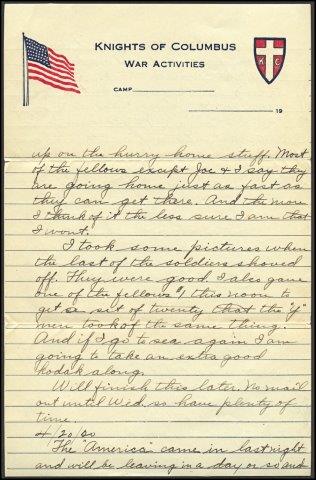 KNIGHTS OF COLUMBUS
WAR ACTIVITIES
K C
CAMP
19
up on the hurry home stuff. Most
of the fellows except Joe & I say they
are going home just as fast as
they can get there. And the more
I think of it the less sure I am that
I wont.
I took some pictures when
the last of the soldiers shoved
off. They were good. I also gave
one of the fellows $1 this noon to
get a set of twenty that the "y"
men took of the same thing.
And if I go to sea again I am
going to take an extra good
kodak along.
Will finish this later. No mail
out until Wed. so have plenty of
time.
4/20/20
The "America" came in last night
and will be leaving in a day or so and